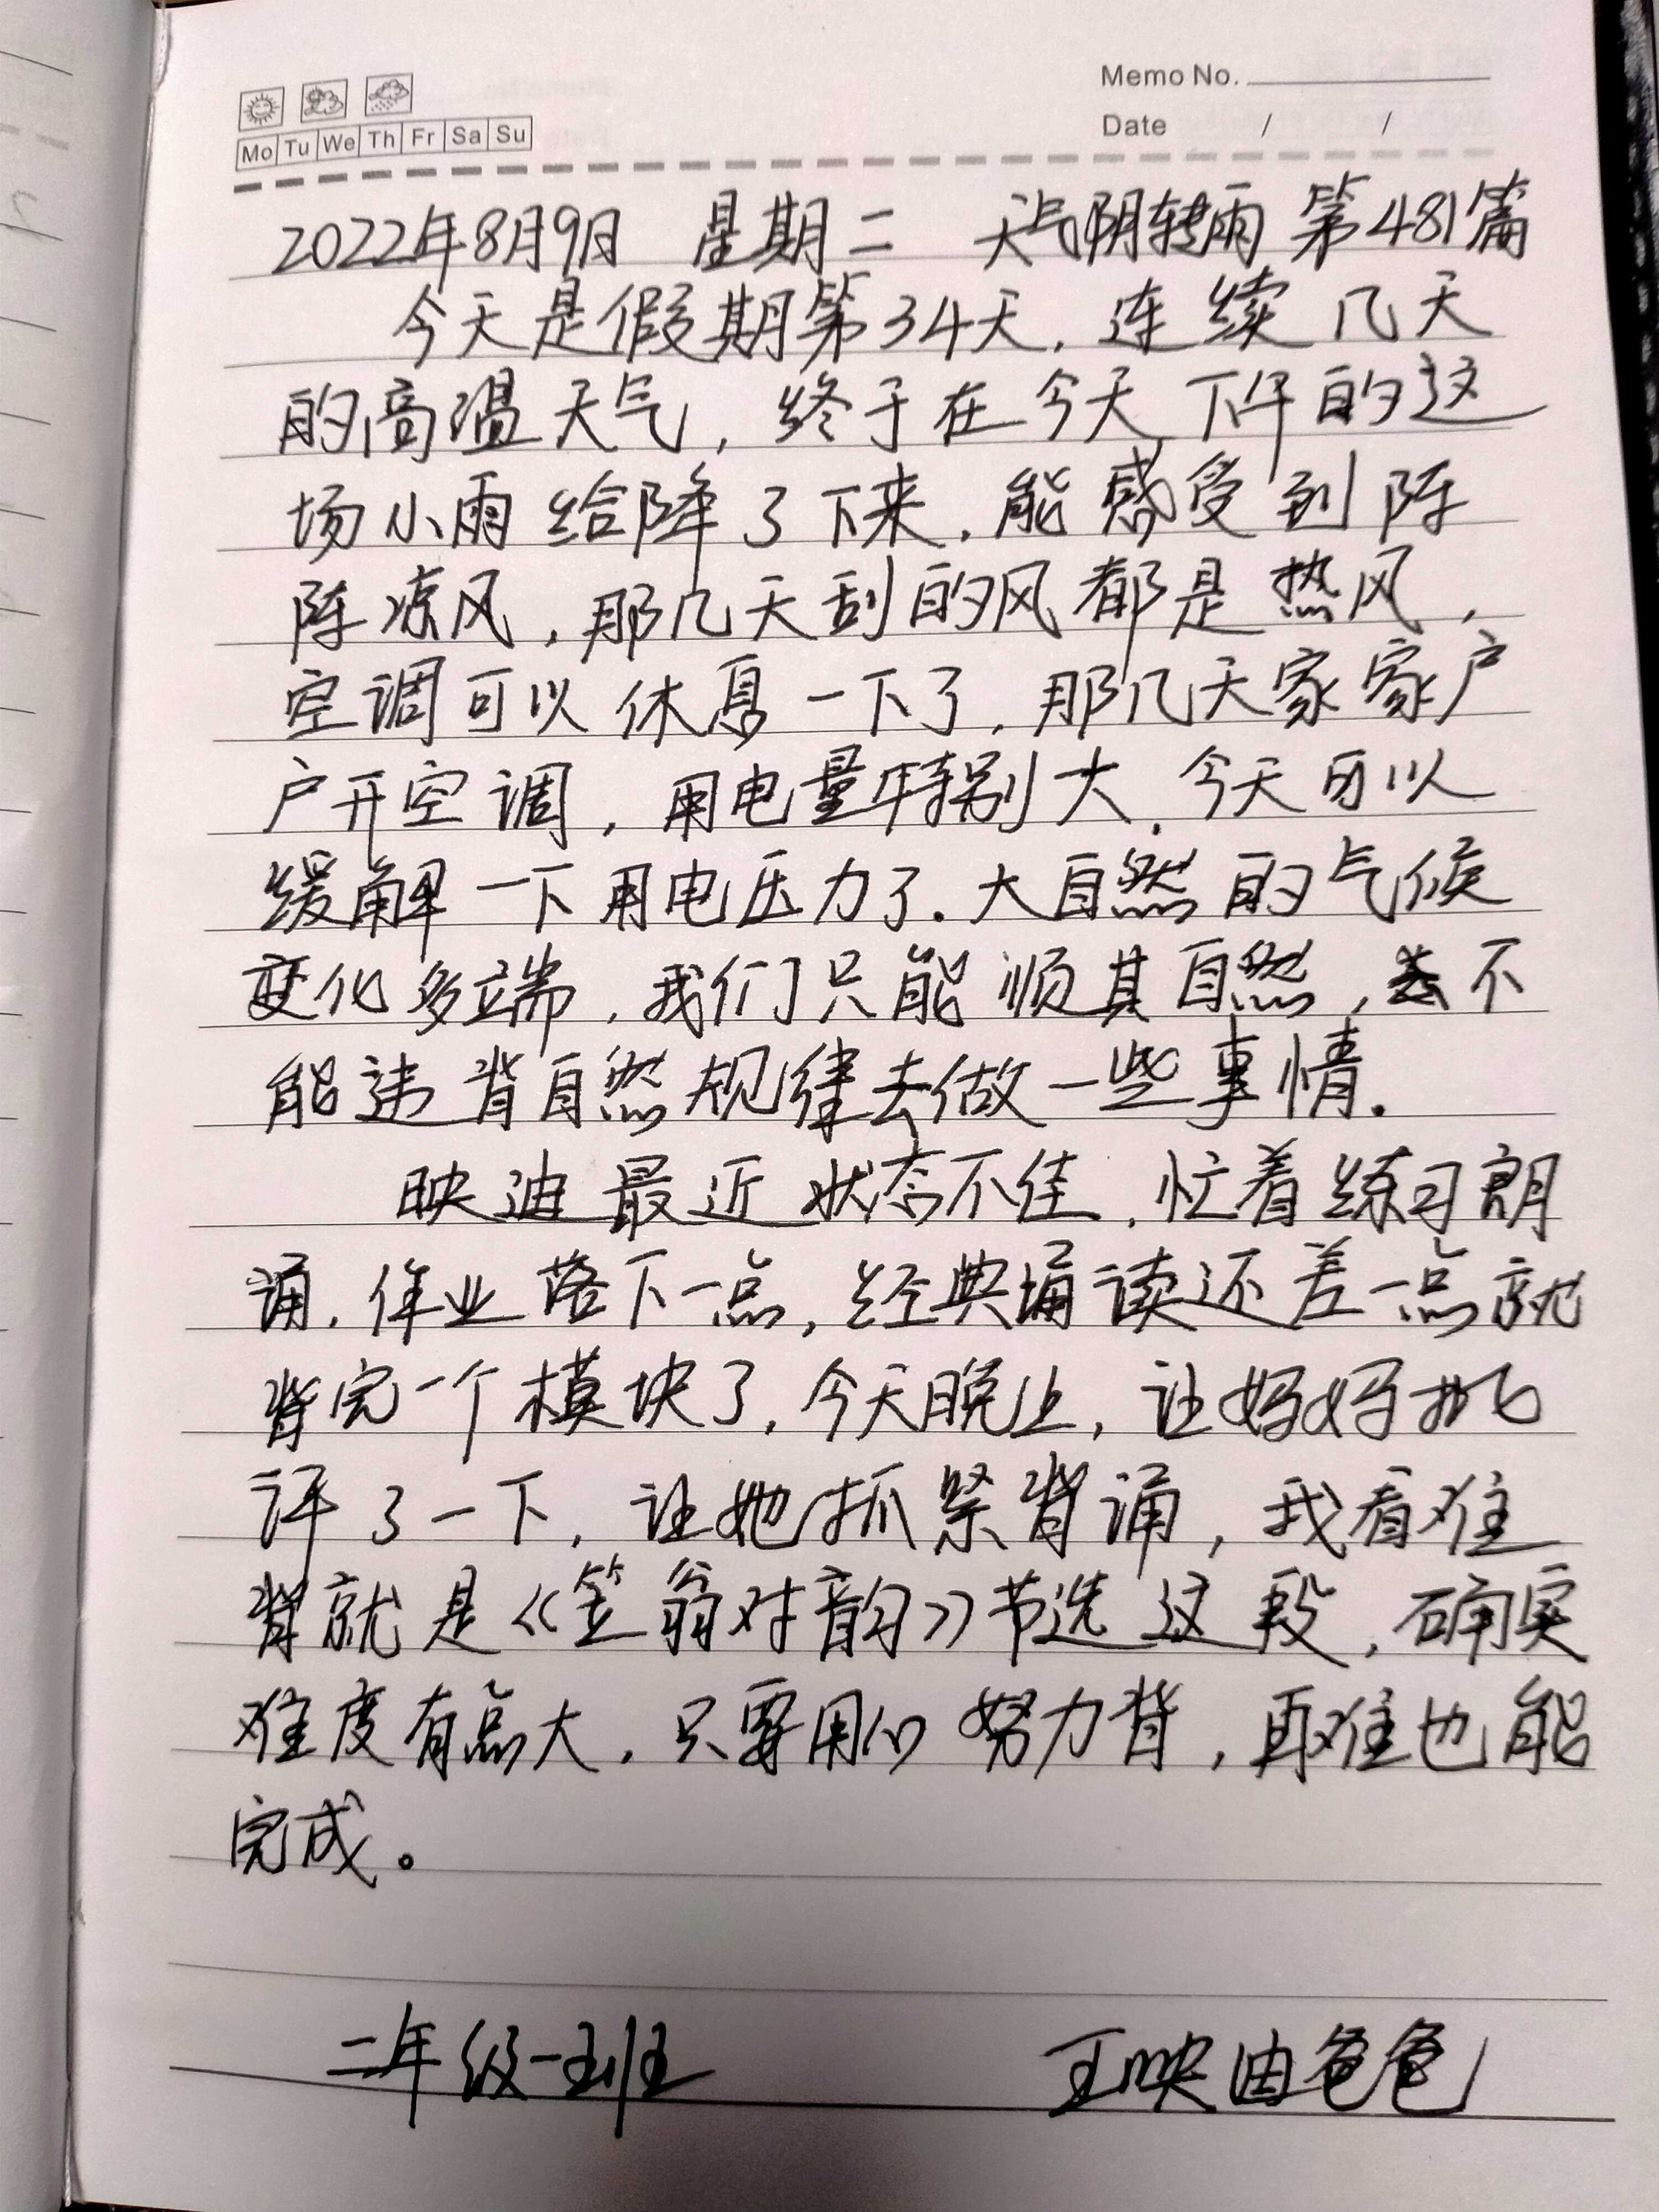 Memo No.
Mo Tu We Th Fr Sa Su
Date / /
2022年8月9日 星期二 天气阴转雨 第481篇
今天是假期第34天,连续几天
的高温天气,终于在今天下午的这
场小雨给降了下来,能感受到阵
阵凉风,那几天刮的风都是热风,
空调可以休息一下了,那几天家家户
户开空调,用电量特别大,今天可以
缓解一下用电压力了.大自然的气候
变化多端,我们只能顺其自然,不
能违背自然规律去做一些事情.
映迪最近状态不佳,忙着练习朗
诵,作业落下一点,经典诵读还差一点就
背完一个模块了,今天晚上,让妈妈批
评了一下,让她抓紧背诵,我看难
背就是《笠翁对韵》节选这段,确实
难度有点大,只要用心努力背,再难也能
完成。
二年级一班 王映迪爸爸